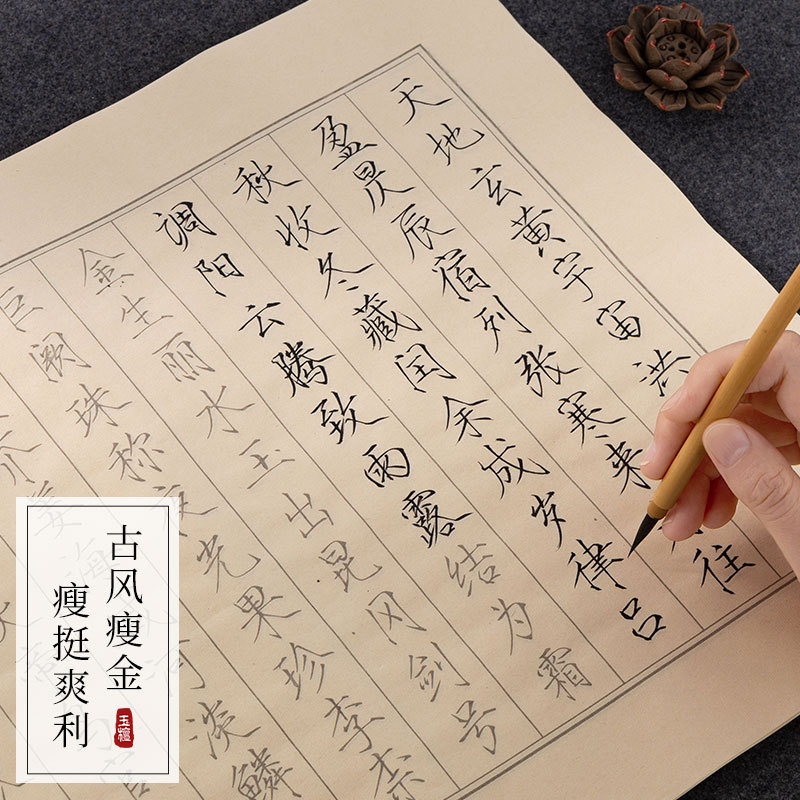 天地玄黄宇宙洪
盈昃辰宿列张寒来往
秋收冬藏闰余成岁律吕
调阳云腾致雨露结为霜
金生丽水玉出昆冈剑号
巨阙珠称夜光果珍李柰
姜河淡鳞
古风瘦金
瘦挺爽利
玉檀